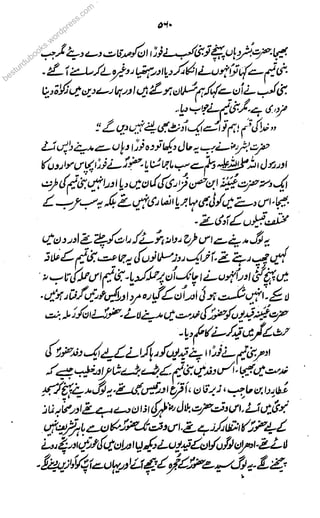 besturdubooks.wordpress.com
۵۶۰
بھیجا۔ حضرت بشرؓ وہاں پہنچے تو بنی کعب نے فوراً ان کو صدقات دے دیئے مگر جب
بنی تمیم سے کہا تو انہوں نے انکار کر دیا اور ہتھیار وغیرہ لے کر سامنے آ گئے۔
بنی کعب نے ان سے کہا کہ ہم مسلمان ہو گئے ہیں اور ہمارے دین میں زکوٰۃ دینا
ضروری ہے، مگر بنی تمیم نے جواب دیا۔
"خدا کی قسم! ہم تو اسے ایک اونٹ بھی لینے نہیں دیں گے"
حضرت بشرؓ نے جب یہ حال دیکھا تو وہ فوراً وہاں سے مدینے واپس آئے
اور رسول اللہ صلی اللہ علیہ وسلم سے سب ماجرا سنایا۔ حضورؐ نے فوراً پچاس سواروں کا
ایک دستہ حضرت عُیَیْنَہ ابن حصن فزاری کی کمان میں دیا اور انہیں بنی تمیم کی طرف
بھیجا۔ اس دستے میں کوئی بھی مہاجر یا انصاری نہیں تھے بلکہ یہ سب عرب کے
مختلف قبیلوں کے آدمی تھے۔
یہ لوگ مدینے سے اس طرح روانہ ہوئے کہ رات کو چلتے تھے اور دن میں
کہیں چھپ رہتے تھے۔ آخر ایک روز مسلمانوں کی یہ جماعت بنی تمیم کے علاقے
میں پہنچ گئی اور انہوں نے اچانک ان پر حملہ کر دیا۔ بنی تمیم اس حملہ کی تاب نہ
لا سکے۔ انہیں شکست ہوئی اور ان کے گیارہ مرد اور اکیس عورتیں گرفتار ہوئیں۔
حضرت عیینہ قیدیوں کو حضورؐ کی خدمت میں مدینے لائے۔ حضورؐ نے ان کو رملہ بنت
حرث کے گھر میں قید کرنے کا حکم دیا۔
ادھر بنی تمیم نے فوراً اپنے قیدیوں کو رہا کرانے کے لیے ایک وفد حضورؐ کی
خدمت میں بھیجا۔ اس وفد میں بنی تمیم کے بڑے بڑے شاعر اور خطیب جیسے کہ
عطارد ابن حاجب، زبرقان، اقرع اور قیس بھی تھے۔ یہ لوگ مدینے پہنچ کر مسجد
نبوی میں آئے۔ اس وقت حضرت بلالؓ ظہر کی اذان دے رہے تھے اور صحابہ نماز
کے لیے حضورؐ کا انتظار کر رہے تھے۔ اس وقت تک حضورؐ مکان سے باہر تشریف نہیں
لائے تھے۔ ادھر ان لوگوں کو ان کے قیدیوں نے دیکھ لیا اور ان میں کی عورتیں اور بچے رونے
چیخنے لگے۔ یہ لوگ سیدھے حضورؐ کے حجرہ کے پیچھے آئے اور یہاں سے آپ کو آوازیں دینے لگے۔